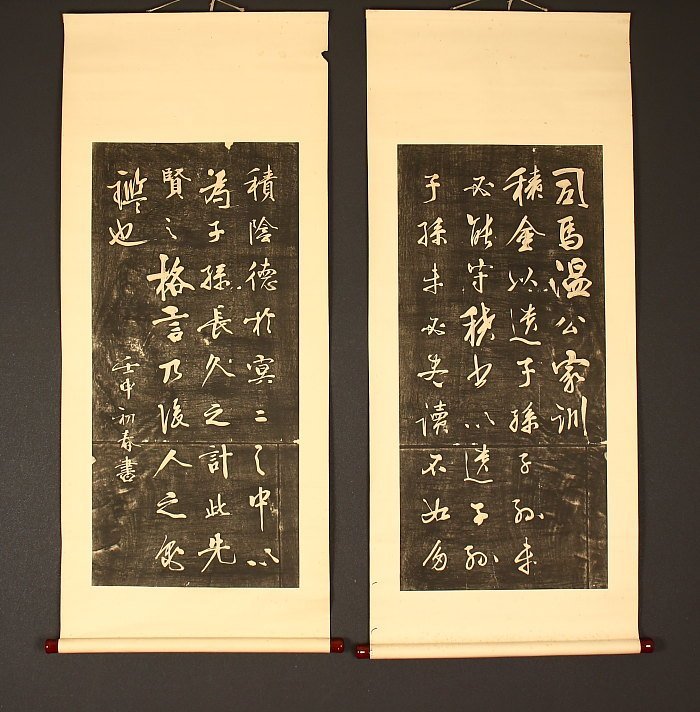 司馬温公家訓
積金以遺子孫子孫未
必能守積書以遺子孫
子孫未必盡讀不如
積陰德於冥〻之中以
為子孫長久之計此先
賢之格言乃後人之龜
鑑也
壬申初春書